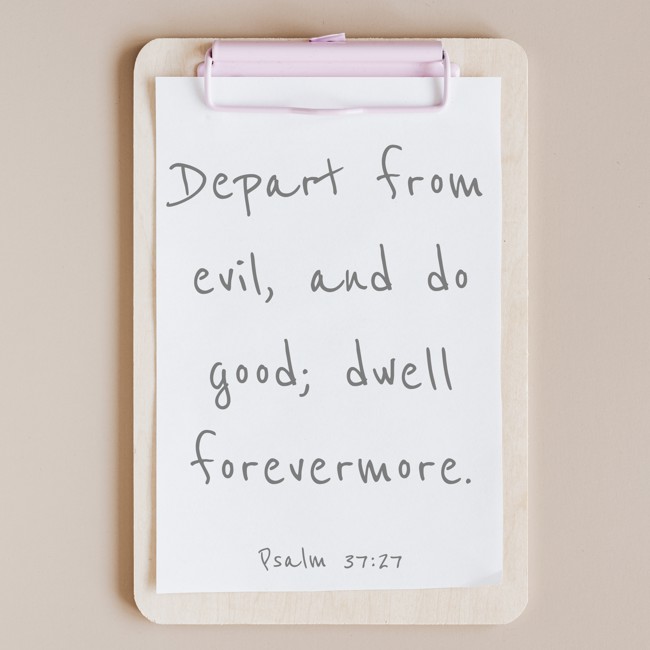 Depart from
evil, and do
good; dwell
forevermore.
Psalm 37:27